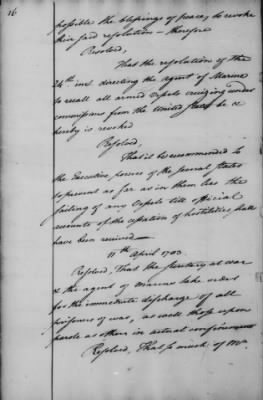 16
possible the blessings of peace, to revoke
their said resolution — therefore
Resolved,
That the resolution of the
24th inst directing the agent of Marine
to recall all armed vessels cruizing under
commissions from the United States be &
hereby is revoked
Resolved,
That it be recommended to
the Executive powers of the several states
to prevent as far as in them lies the
sailing of any vessels till official
accounts of the cessation of hostilities shall
have been received —
11th April 1783.
Resolved, That the Secretary at war
& the agent of marine take orders
for the immediate discharge of all
prisoners of war, as well those upon
parole as others in actual confinement
Resolved, That so much of Mr